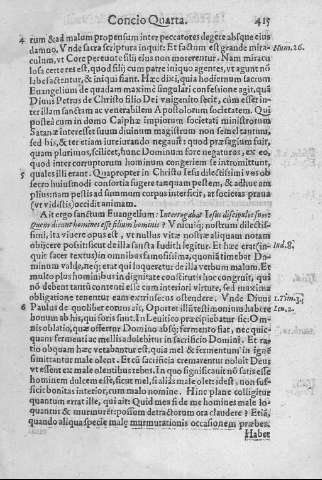 Concio Quarta. 415
4 rum & ad malum propensum inter peccatores degere absque eius
damno, Vnde sacra scriptura inquit: Et factum est grande mira- Num. 26.
culum, vt Core pereunte filii eius non morerentur. Nam miracu
los certe res est, quod filij cum patre iniquo agentes, vt agunt nõ
labefactentur, & iniqui fiant. Hæc dixi, quia hodiernum sacrum
Euangelium de quadam maxime singulari confessione agit, quã
Diuus Petrus de Christo filio Dei vaigenito fecit, cùm esset in-
ter illam sanctam ac venerabilem Apostolorum societatem. Qui
postea cum in domo Caiphæ impiorum societati ministrorum
Satanæ interesset suum diuinum magistrum non semel tantum,
sed bis, & ter etiam iurando negauit: quod præsagium fuit,
quam plurimos, scilicet, hunc Dominum fore negaturos, ex eo,
quod inter corruptorum hominum congeriem se intromittunt,
5 quales illi erant. Quapropter in Christo Iesu dilectissimi vos ob
secro huiusmodi consortia fugere tanquam pestem, & adhuc am
plius: nam pestis ad summum corpus interficit, at societas praua
(vt vidistis) occidit animam.
Ait ergo sanctum Euangelium: Interrogabat Iesus discipulos suos:
Quem dicunt homines esse filium hominis? Vnicuiq; nostrum dilectis-
simi, ita viuere opus est, vt nullus vitæ nostræ aliquam notam
obijcere possit: sicut de illa sancta Iudith legitur. Et hæc erat (in-
quit sacer textus) in omnibus famosissima, quoniã timebat Do- Iud. 8,
minum valde, nec erat qui loqueretur de illa verbum malum. Et
multo plus hominibus in dignitate constitutis hæc congruit, quã
nò debent tantũ contenti esse cum interiori virtute, sed maxima
obligatione tenentur eam extrinsecus ostendere. Vnde Diuus 1. Tim. 3.
6 Paulus de quolibet eorum ait, Oportet illũ testimonium habere Leu. 2.
bonum ab his, qui foris sunt. In Leuitico præcipiebatur sic: Om-
nis oblatio, quæ offertur Domino absq; fermento fiat, nec quic-
quam fermenti ac mellis adolebitur in sacrificio Domini. Et ra
tio ob quam hæc vetabantur est, quia mel & fermentum in ignẽ
simittantur male olent. Et cũ sacrificia cremarentur noluit Deus
vt essent ex male olentibus rebus. In quo significauit nõ satis esse
hominem dulcem esse, sicut mel, si aliàs male olet: idest, non suf-
ficit bonitas interior, cum malo nomine. Hinc plane colligitur
quantum errat ille, qui ait: Quid mea si de me homines male lo-
quantur & murmurẽt: possem detractorum ora claudere? Etiã,
quando aliqua specie male murmurationis occasionem præbes.
Habet